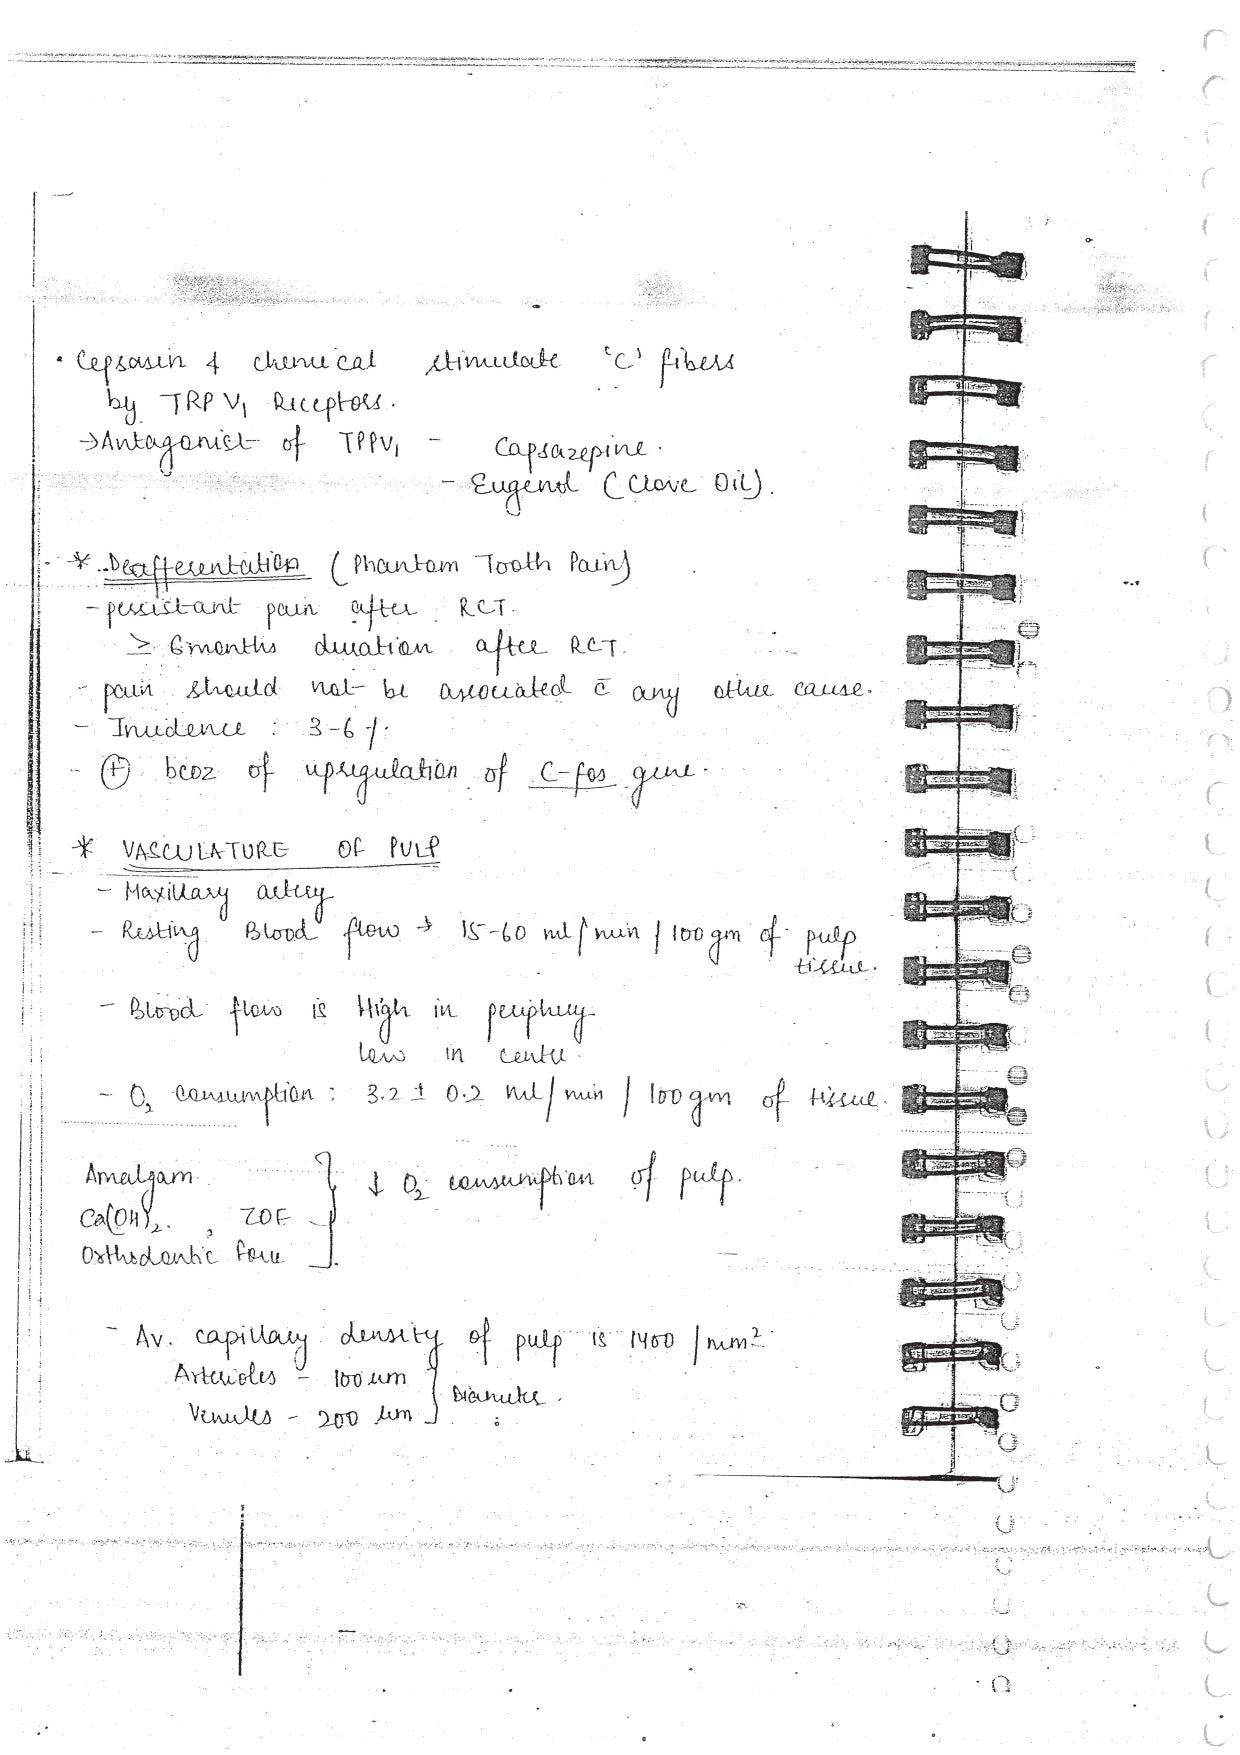 • Cepsasin & chemical stimulate 'C' fibers
by TRPV₁ Receptors.
→Antagonist of TPPV₁ - Capsazepine.
- Eugenol (Clove Oil).
* Deafferentation (Phantom Tooth Pain)
- persistant pain after RCT.
≥ 6months duration after RCT.
- pain should not be associated c̄ any other cause.
- Incidence : 3-6 %.
- ⊕ bcoz of upregulation of C-fos gene.
* VASCULATURE OF PULP
- Maxillary artery
- Resting Blood flow → 15-60 ml/min/100gm of pulp
tissue.
- Blood flow is High in periphery
low in centre.
- O₂ consumption : 3.2 ± 0.2 ml/min/100gm of tissue.
Amalgam
Ca(OH)₂. , ZOE } ↓ O₂ consumption of pulp.
Orthodontic force
- Av. capillary density of pulp is 1400/mm²
Arterioles - 100 um
Venules - 200 um } Diameter.